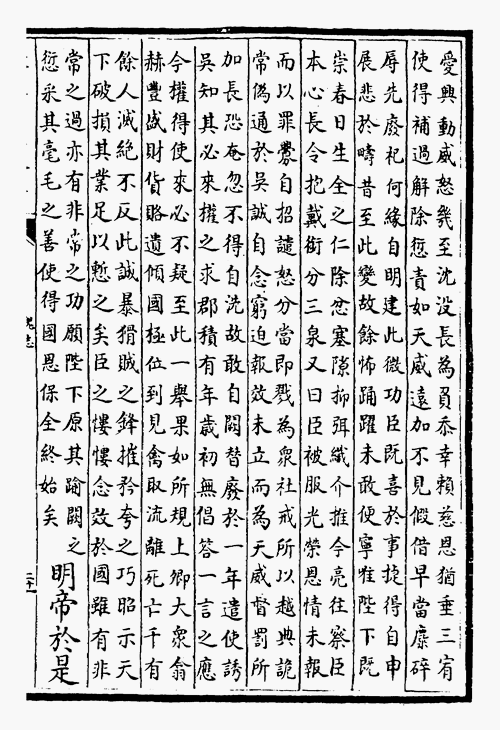 愛興動威怒幾至沈没長為負忝幸賴慈恩猶垂三宥
使得補過解除愆責如天威遠加不見假借早當麋碎
辱先廢祀何緣自明建此微功臣既喜於事捷得自申
展悲於疇昔至此變故餘怖踊躍未敢便寧唯陛下既
崇春日生全之仁除忿塞隙抑弭纖介推今亮往察臣
本心長令抱戴銜分三泉又曰臣被服光榮恩情未報
而以罪釁自招譴怒分當即戮為衆社戒所以越典詭
常偽通於吳誠自念窮迫報效未立而為天威督罰所
加長恐奄忽不得自洗故敢自闕替廢於一年遣使誘
吳知其必來權之求郡積有年歲初無倡答一言之應
今權得使來必不疑至此一舉果如所規上卿大衆翕
赫豐盛財貨賂遺傾國極位到見禽取流離死亡千有
餘人滅絶不反此誠暴猾賊之鋒摧矜夸之巧昭示天
下破損其業足以慙之矣臣之悾悾念效於國雖有非
常之過亦有非常之功願陛下原其踰闕之
愆采其毫毛之善使得國恩保全終始矣
明帝於是